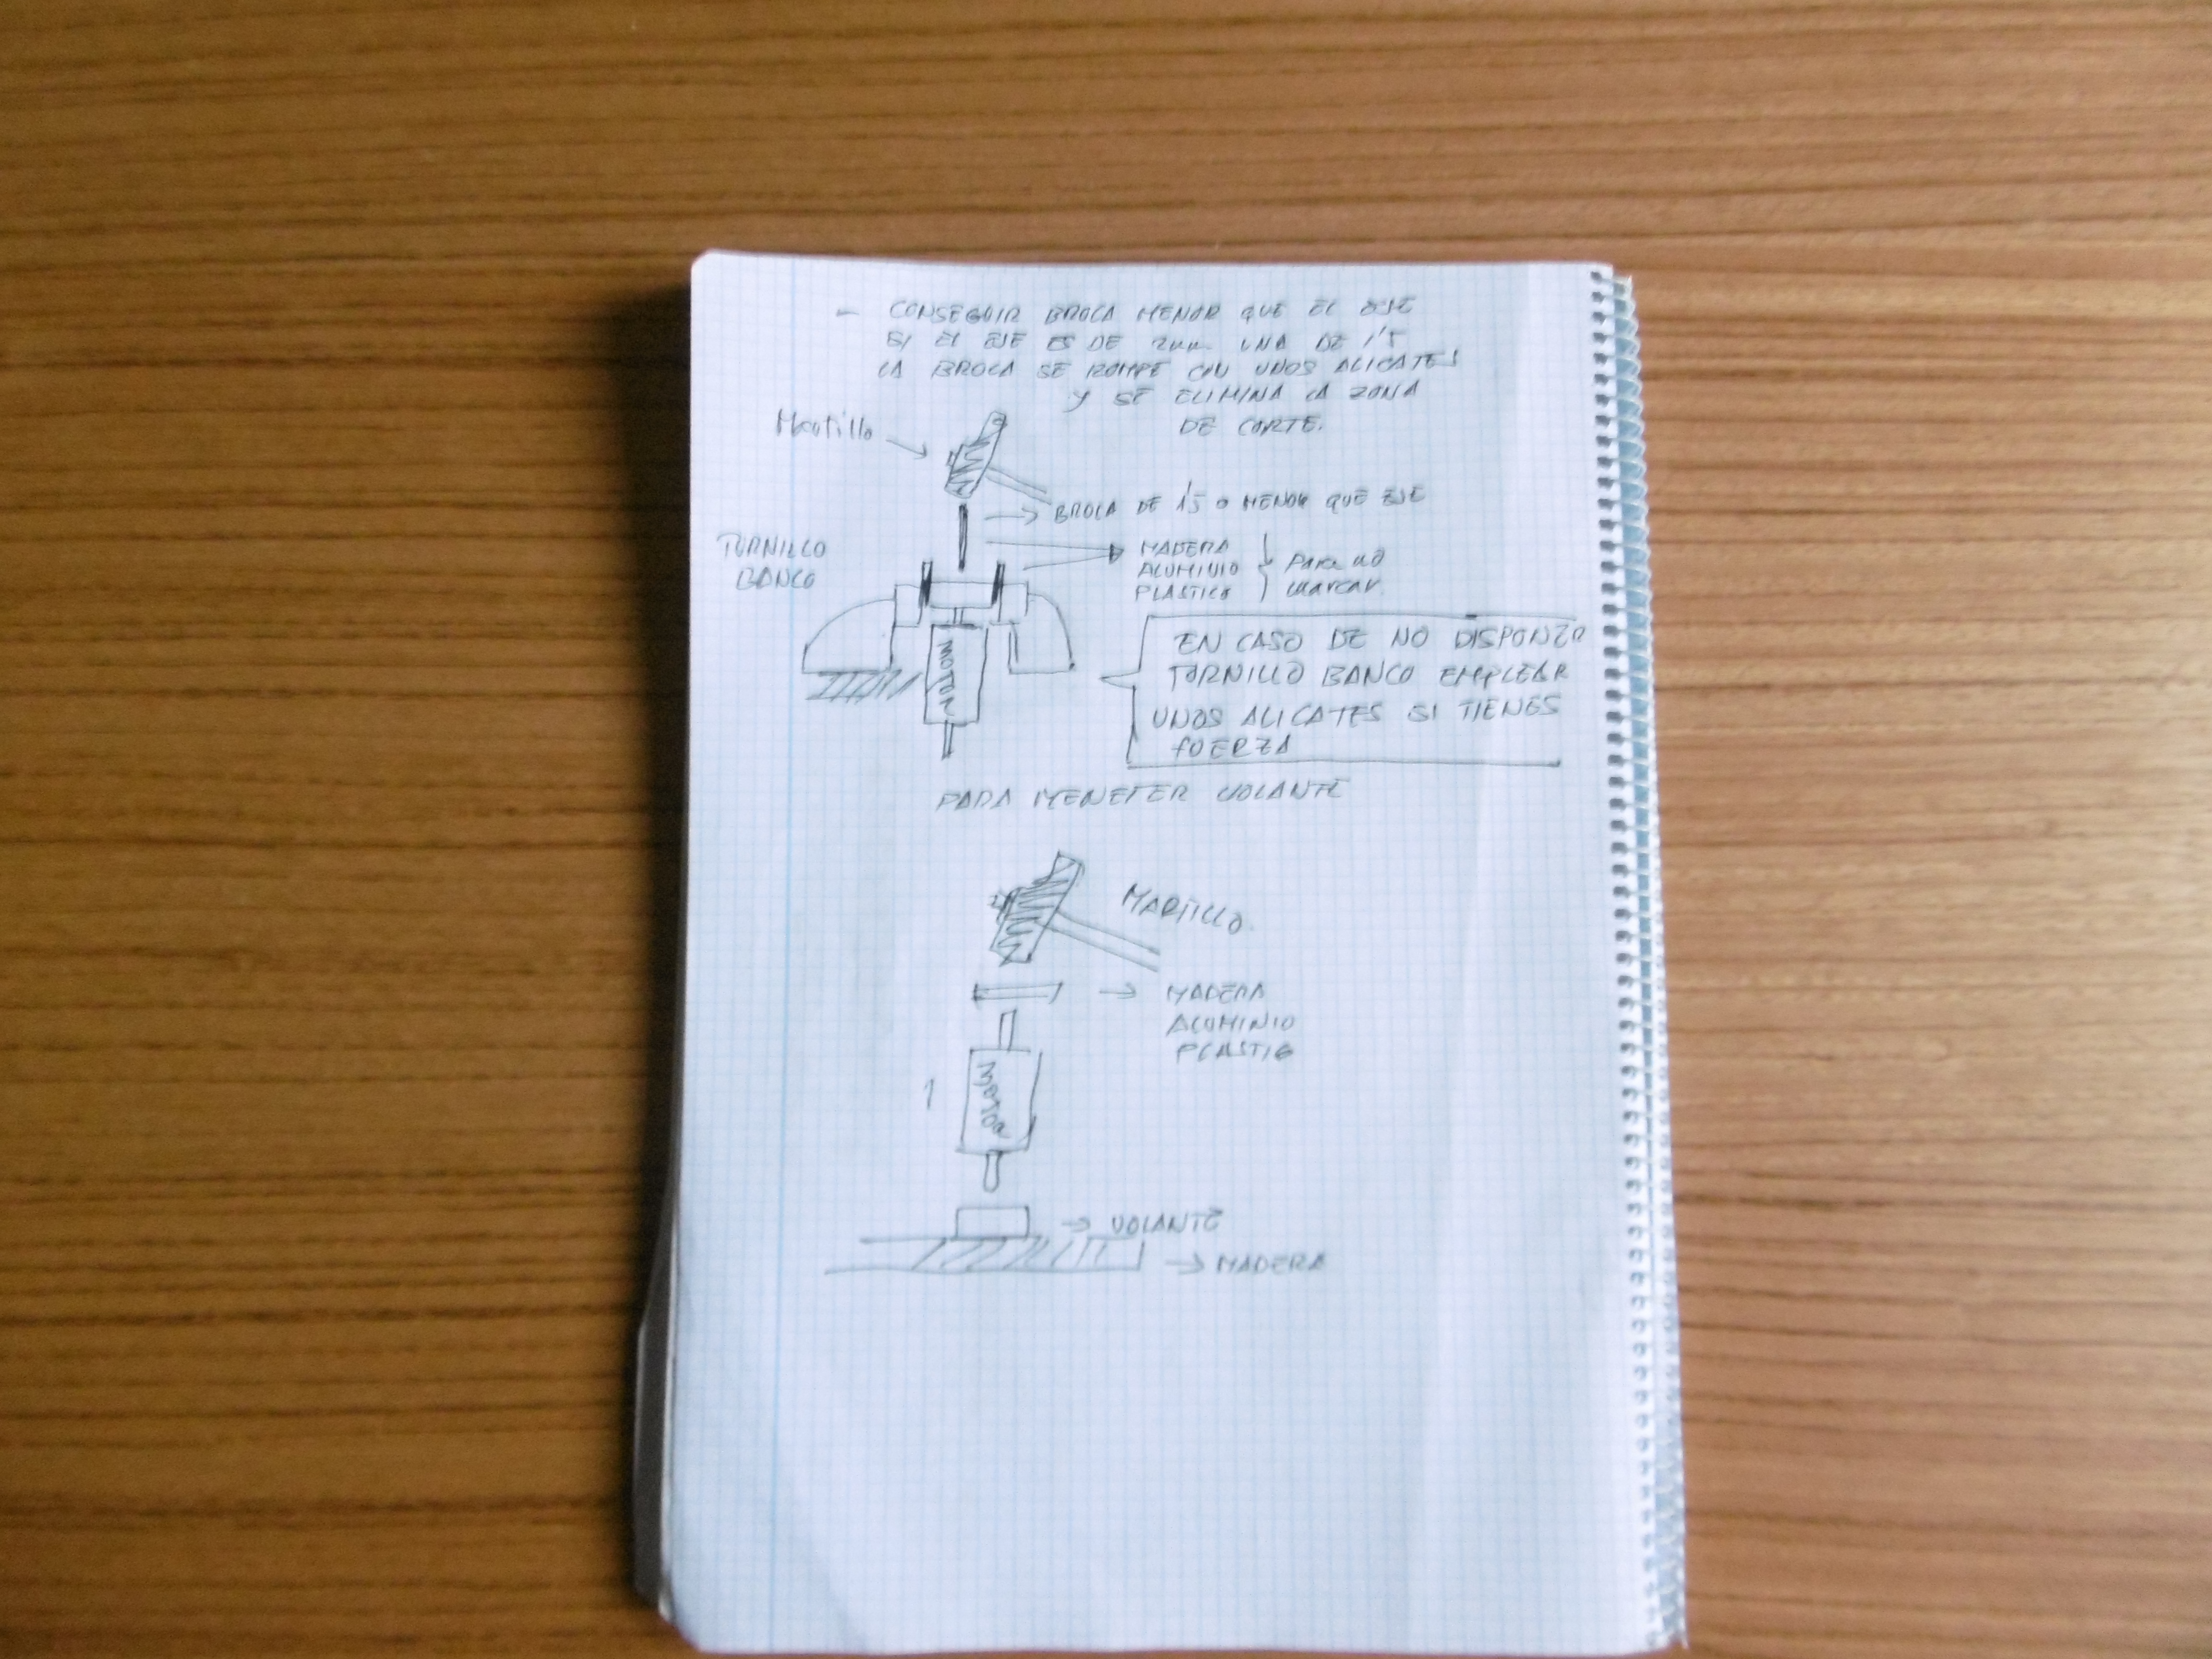 - CONSEGUIR BROCA MENOR QUE EL EJE
SI EL EJE ES DE 2mm UNA DE 1'5
LA BROCA SE ROMPE CON UNOS ALICATES
Y SE ELIMINA LA ZONA
DE CORTE.
Martillo
BROCA DE 1'5 O MENOR QUE EJE
TORNILLO
BANCO
MADERA
ALUMINIO
PLASTICO
Para no
marcar
MOTOR
EN CASO DE NO DISPONER
TORNILLO BANCO EMPLEAR
UNOS ALICATES SI TIENES
FUERZA
PARA VOLANTE
MARTILLO.
MADERA
ALUMINIO
PLASTICO
MOTOR
1
VOLANTE
MADERA